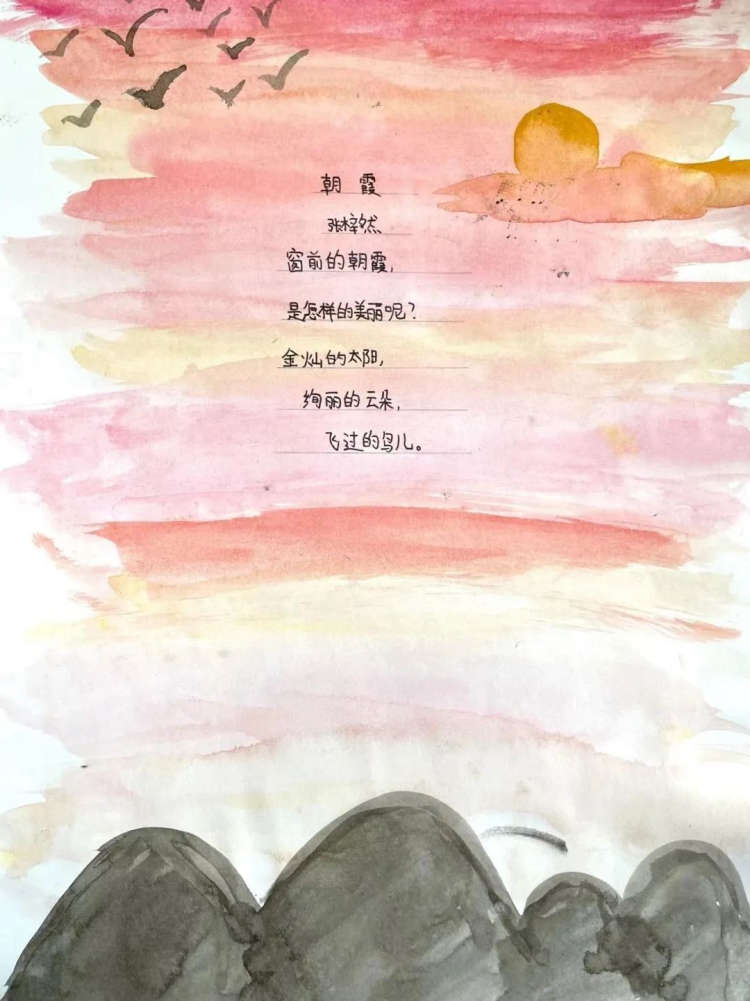 朝霞
张梓然
窗前的朝霞,
是怎样的美丽呢?
金灿的太阳,
绚丽的云朵,
飞过的鸟儿。